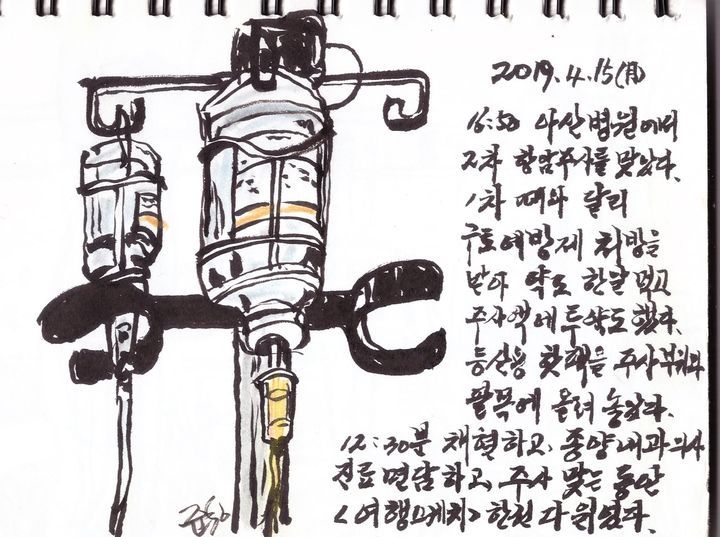 2019.4.15(月)
16:50 아산병원에서
2차 항암주사를 맞았다.
1차 때와 달리
구토예방제 처방을
받아 약도 한알 먹고
주사액에 투약도 했다.
등산용 핫팩을 주사부위와
팔목에 올려 놓았다.
12:30분 채혈하고, 종양내과의사
진료 면담하고, 주사 맞는 동안
<여행스케치> 한권 다 읽었다.